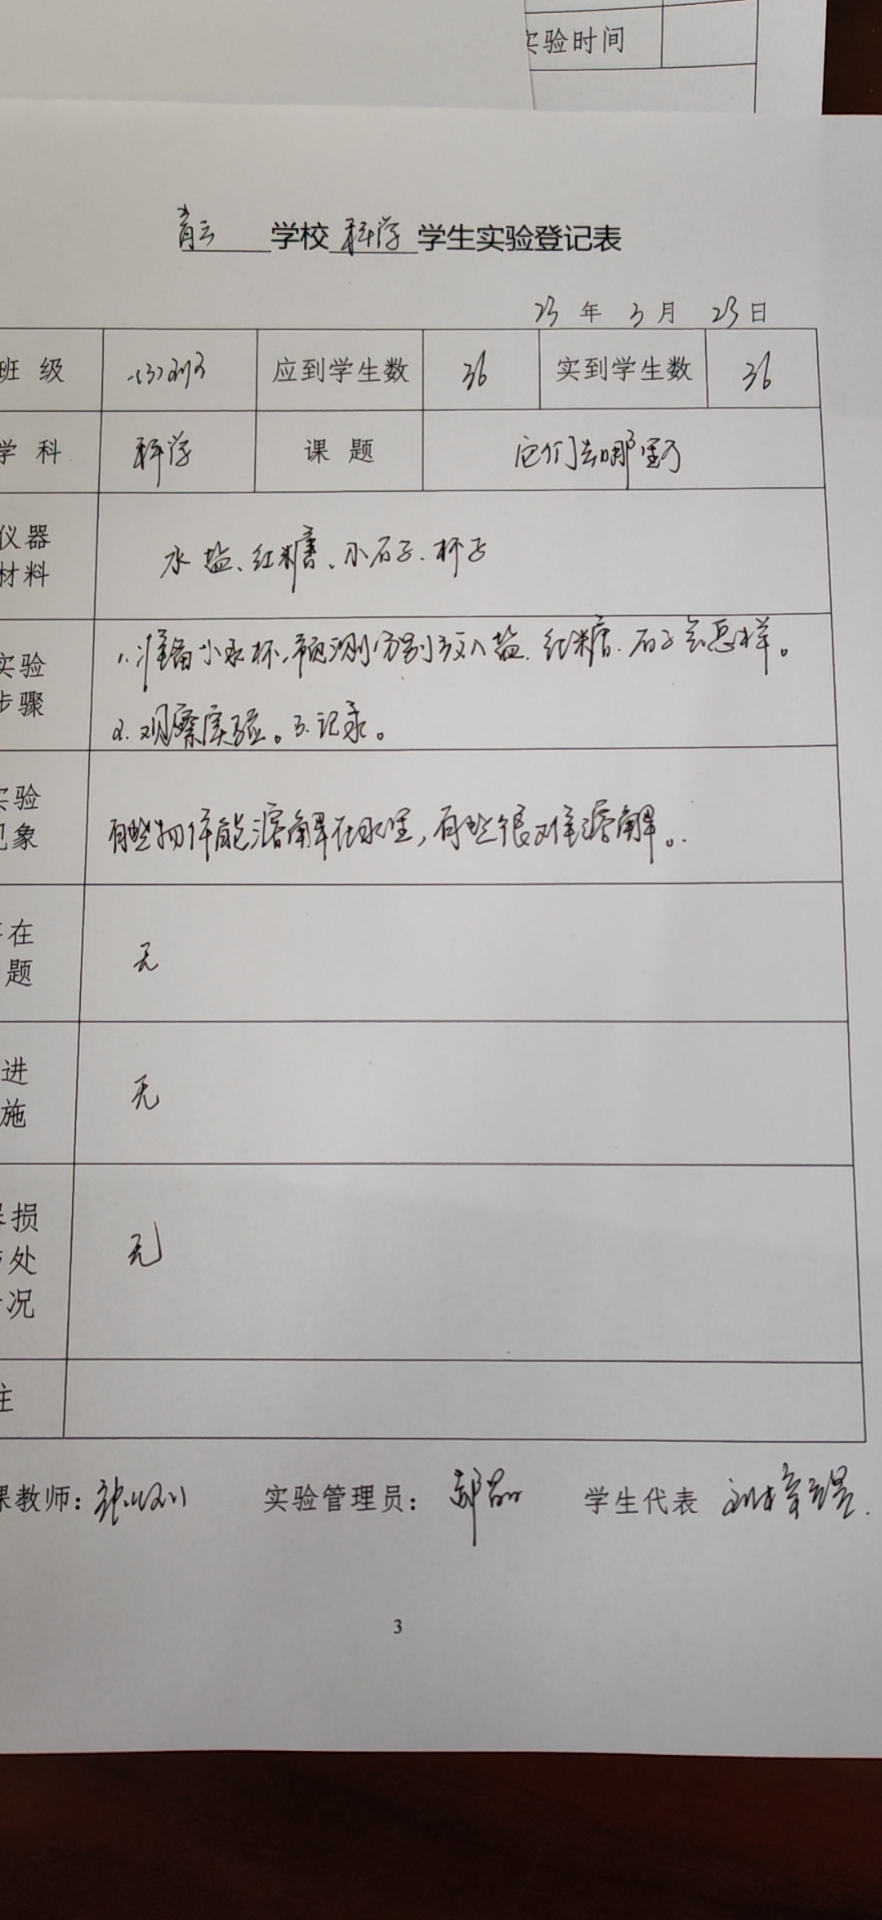 实验时间
青云 学校 科学 学生实验登记表
23 年 3 月 23 日
班 级 一(3) 应到学生数 36 实到学生数 36
学 科 科学 课 题 它们去哪里了
仪器
材料
水 盐、红糖、小石子、杯子
实验
步骤
1.准备小水杯,预测分别放入盐、红糖、石子会怎样。
2.观察实验。3.记录。
实验
现象
有些物体能溶解在水里,有些很难溶解。
在
题
无
进
施
无
损
处
况
无
注
课教师: 实验管理员: 学生代表
3